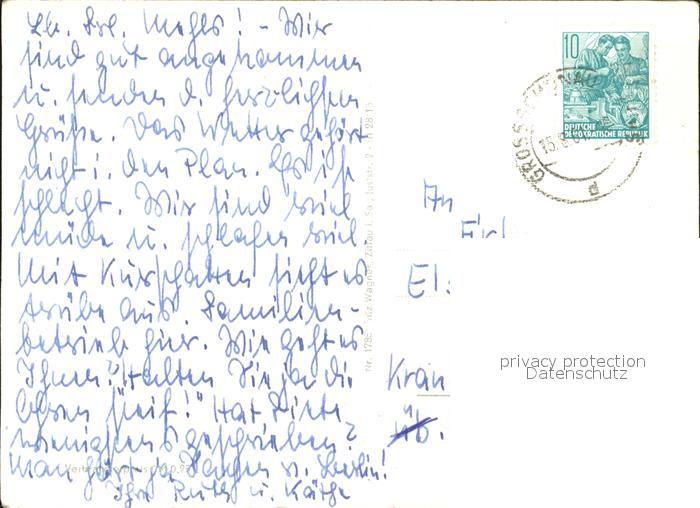 Lb. Frl. Mehls! - Wir
sind gut angekommen
u. senden d. herzlichsten
Grüße. Das Wetter gehört
nicht i. den Plan. Es ist
schlecht. Wir sind viel
müde u. schlafen viel.
Mit Kurschatten sieht es
trübe aus. Familien-
betrieb hier. Wie geht es
Ihnen? Halten Sie ja die
Ohren steif!" Hat
wenigstens geschrieben?
Man hört ja Sachen v. Berlin!
Ihre Ruth u. Käthe
10
DEUTSCHE
DEMOKRATISCHE REPUBLIK
GROSSSCHÖNAU
An
El
Kran
Üb.
privacy protection
Datenschutz